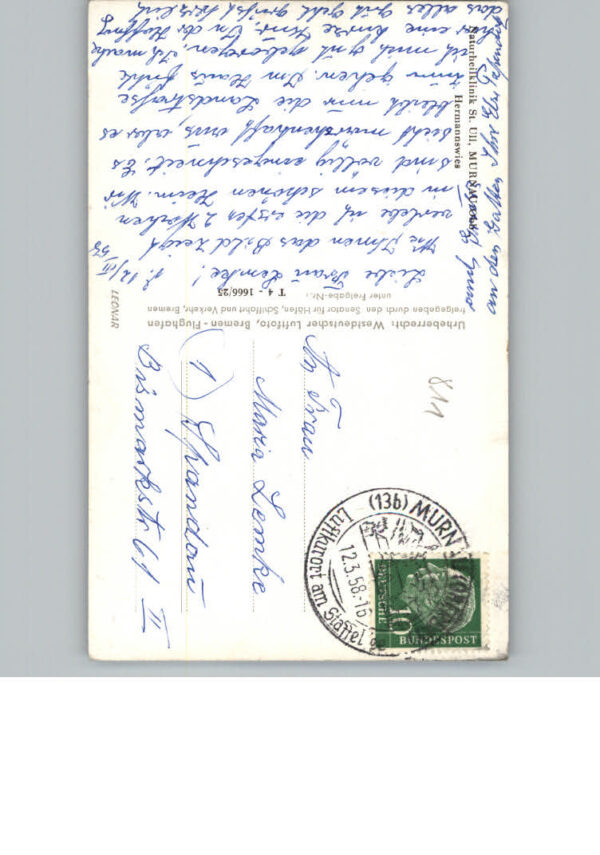 Naturheilklinik St. Ull, MURNAU
Hermannswies
P. 12/III 58
Liebe Frau Lemke!
Wie Ihnen das Bild zeigt
verlebe ich die ersten 2 Wochen
in diesem schönen Heim. Wir
sind völlig eingeschneit. Es
sieht märchenhaft aus, aber es
bleibt nur die Landstraße
zum gehen. Im Haus fühle
ich mich gut geborgen. Ich mache
hier eine Kur. In der Hoffnung
das alles gut geht grüßt herzlich
LEONAR
Urheberrecht: Westdeutscher Luftfoto, Bremen - Flughafen
freigegeben durch den Senator für Häfen, Schiffahrt und Verkehr, Bremen
unter Freigabe-Nr.: T 4 - 1666/25
An Frau
Maria Lemke
(1) Spandau
Bismarkstr. 61 II
811
(13b) MURNAU
12.3.58-16
Luftkurort am Staffelsee
DEUTSCHE
BUNDESPOST
10